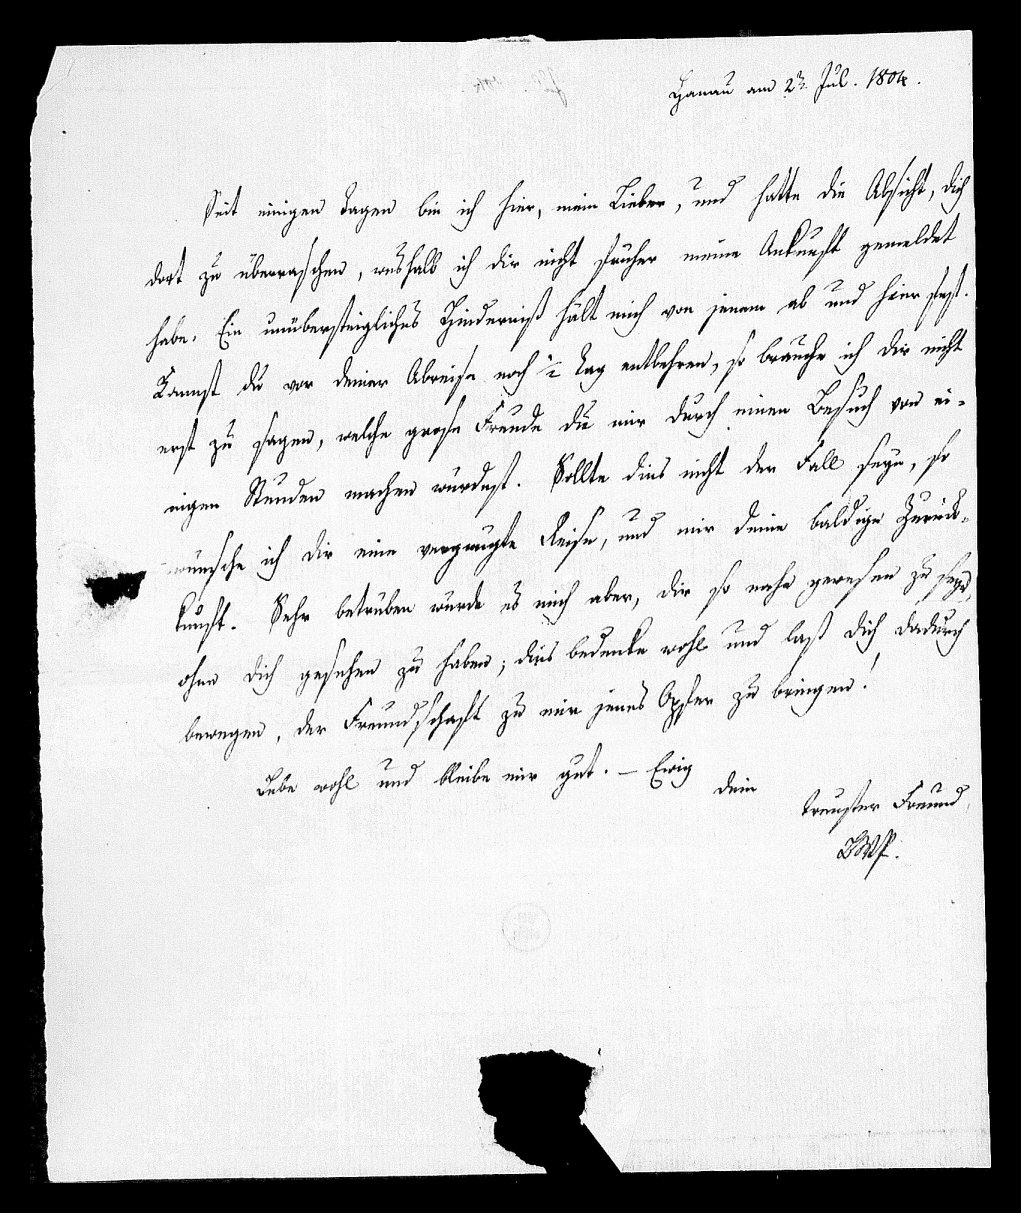 Hanau am 23. Jul. 1804.
Seit einigen Tagen bin ich hier, mein Lieber, und hatte die Absicht, dich
dort zu überraschen, weshalb ich dir nicht früher meine Ankunft gemeldet
habe. Ein unübersteigliches Hinderniß hält mich von jenem ab und hier fest.
Kannst du vor deiner Abreise noch ½ Tag entbehren, so brauche ich dir nicht
erst zu sagen, welche grose Freude du mir durch einen Besuch von ei-
nigen Stunden machen würdest. Sollte dies nicht der Fall seyn, so
wünsche ich dir eine vergnügte Reise, und mir deine baldige Zurück-
kunft. Sehr betrüben würde es mich aber, dir so nahe gewesen zu seyn,
ohne dich gesehen zu haben; dies bedenke wohl und laß dich dadurch
bewegen, der Freundschaft zu mir jenes Opfer zu bringen!
Lebe wohl und bleibe mir gut. — Ewig
dein
treuster Freund,